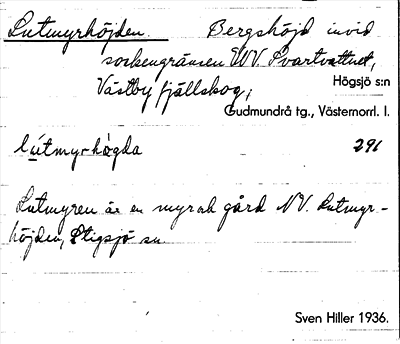 Lutmyrhöjden. Bergshöjd invid
sockengränsen VNV. Svartvattnet,
Västby fjällskog, Högsjö s:n
Gudmundrå tg., Västernorrl. l.
lútmyrhògda 291
Lutmyren är en myr och gård NV. Lutmyr-
höjden, Stigsjö sn
Sven Hiller 1936.